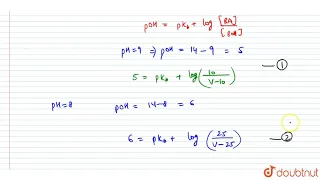 pOH = pKb + log [BA]/[BOH]
pH=9 ⇒ pOH = 14-9 = 5
5 = pKb + log (10/V-10) — ①
pH=8 pOH = 14-8 = 6
6 = pKb + log (25/V-25) — ②
doubtnut